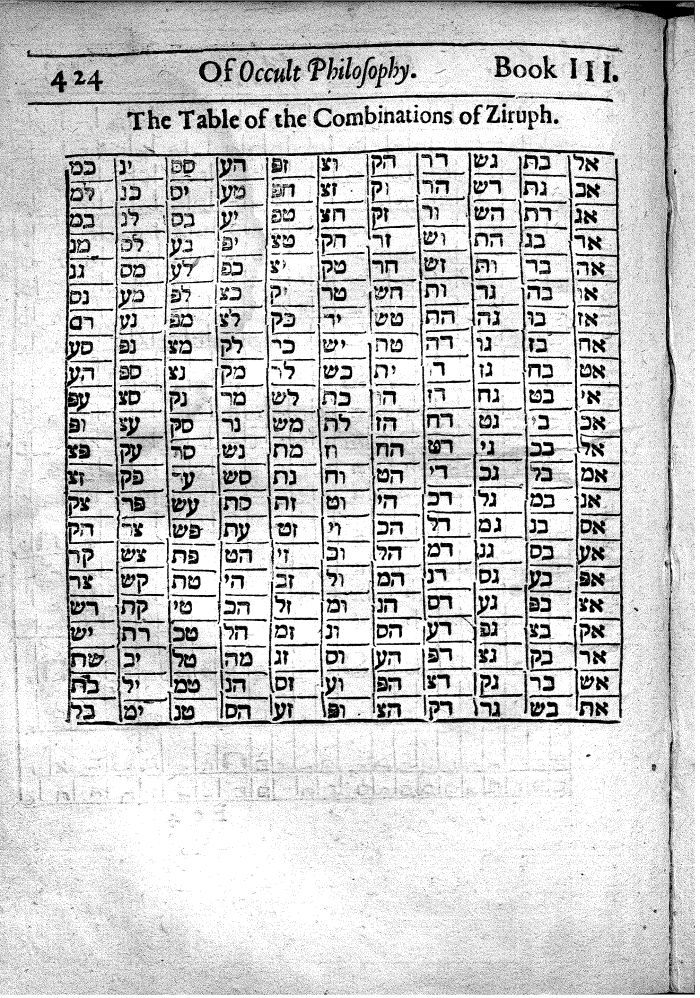 424 Of Occult Philosophy. Book III.
The Table of the Combinations of Ziruph.
אל בת גש דר הק וצ זפ הע ינ כמ
אב גת דש הר וק זצ חפ טע יס כנ למ
אג דת הש ור זק חצ טפ יע כס לנ במ
אד בג הת וש זר חק טצ יפ כע לס מנ
אה בד ות זש חר טק יצ כפ לע מס גנ
או בה גד ות חש טר יק כצ לפ מע נס
אז בו גה חת טש יר כק לצ מפ נע דם
אח בז גו דה טה יש כר לק מצ נפ סע
אט בח גז ית כש לר מק נצ ספ הע
אי בט גח דז הו כת לש מר נק סצ עפ
אכ בי גט דח הז לת מש נר סק עצ ופ
אל בכ גי דט הח מת נש סר עק פצ
אמ בל גכ די הט וח נת סש ער פק זצ
אנ במ גל דכ הי וט זה סת עש פר צק
אס בנ גמ דל הכ וי זט עת פש צר הק
אע בס גנ דמ הל וכ זי הט פת צש קר
אפ בע גס דנ המ ול זכ הי טת קש צר
אצ בפ גע דס הנ ומ זל הכ טי קת רש
אק בצ גפ דע הס ונ זמ הל טכ רת יש
אר בק גצ דפ הע וס זנ מה טל יכ שת
אש בר גק דצ הפ וע זס הנ טמ יל כת
את בש גר דק הצ ופ זע הס טנ ימ כל